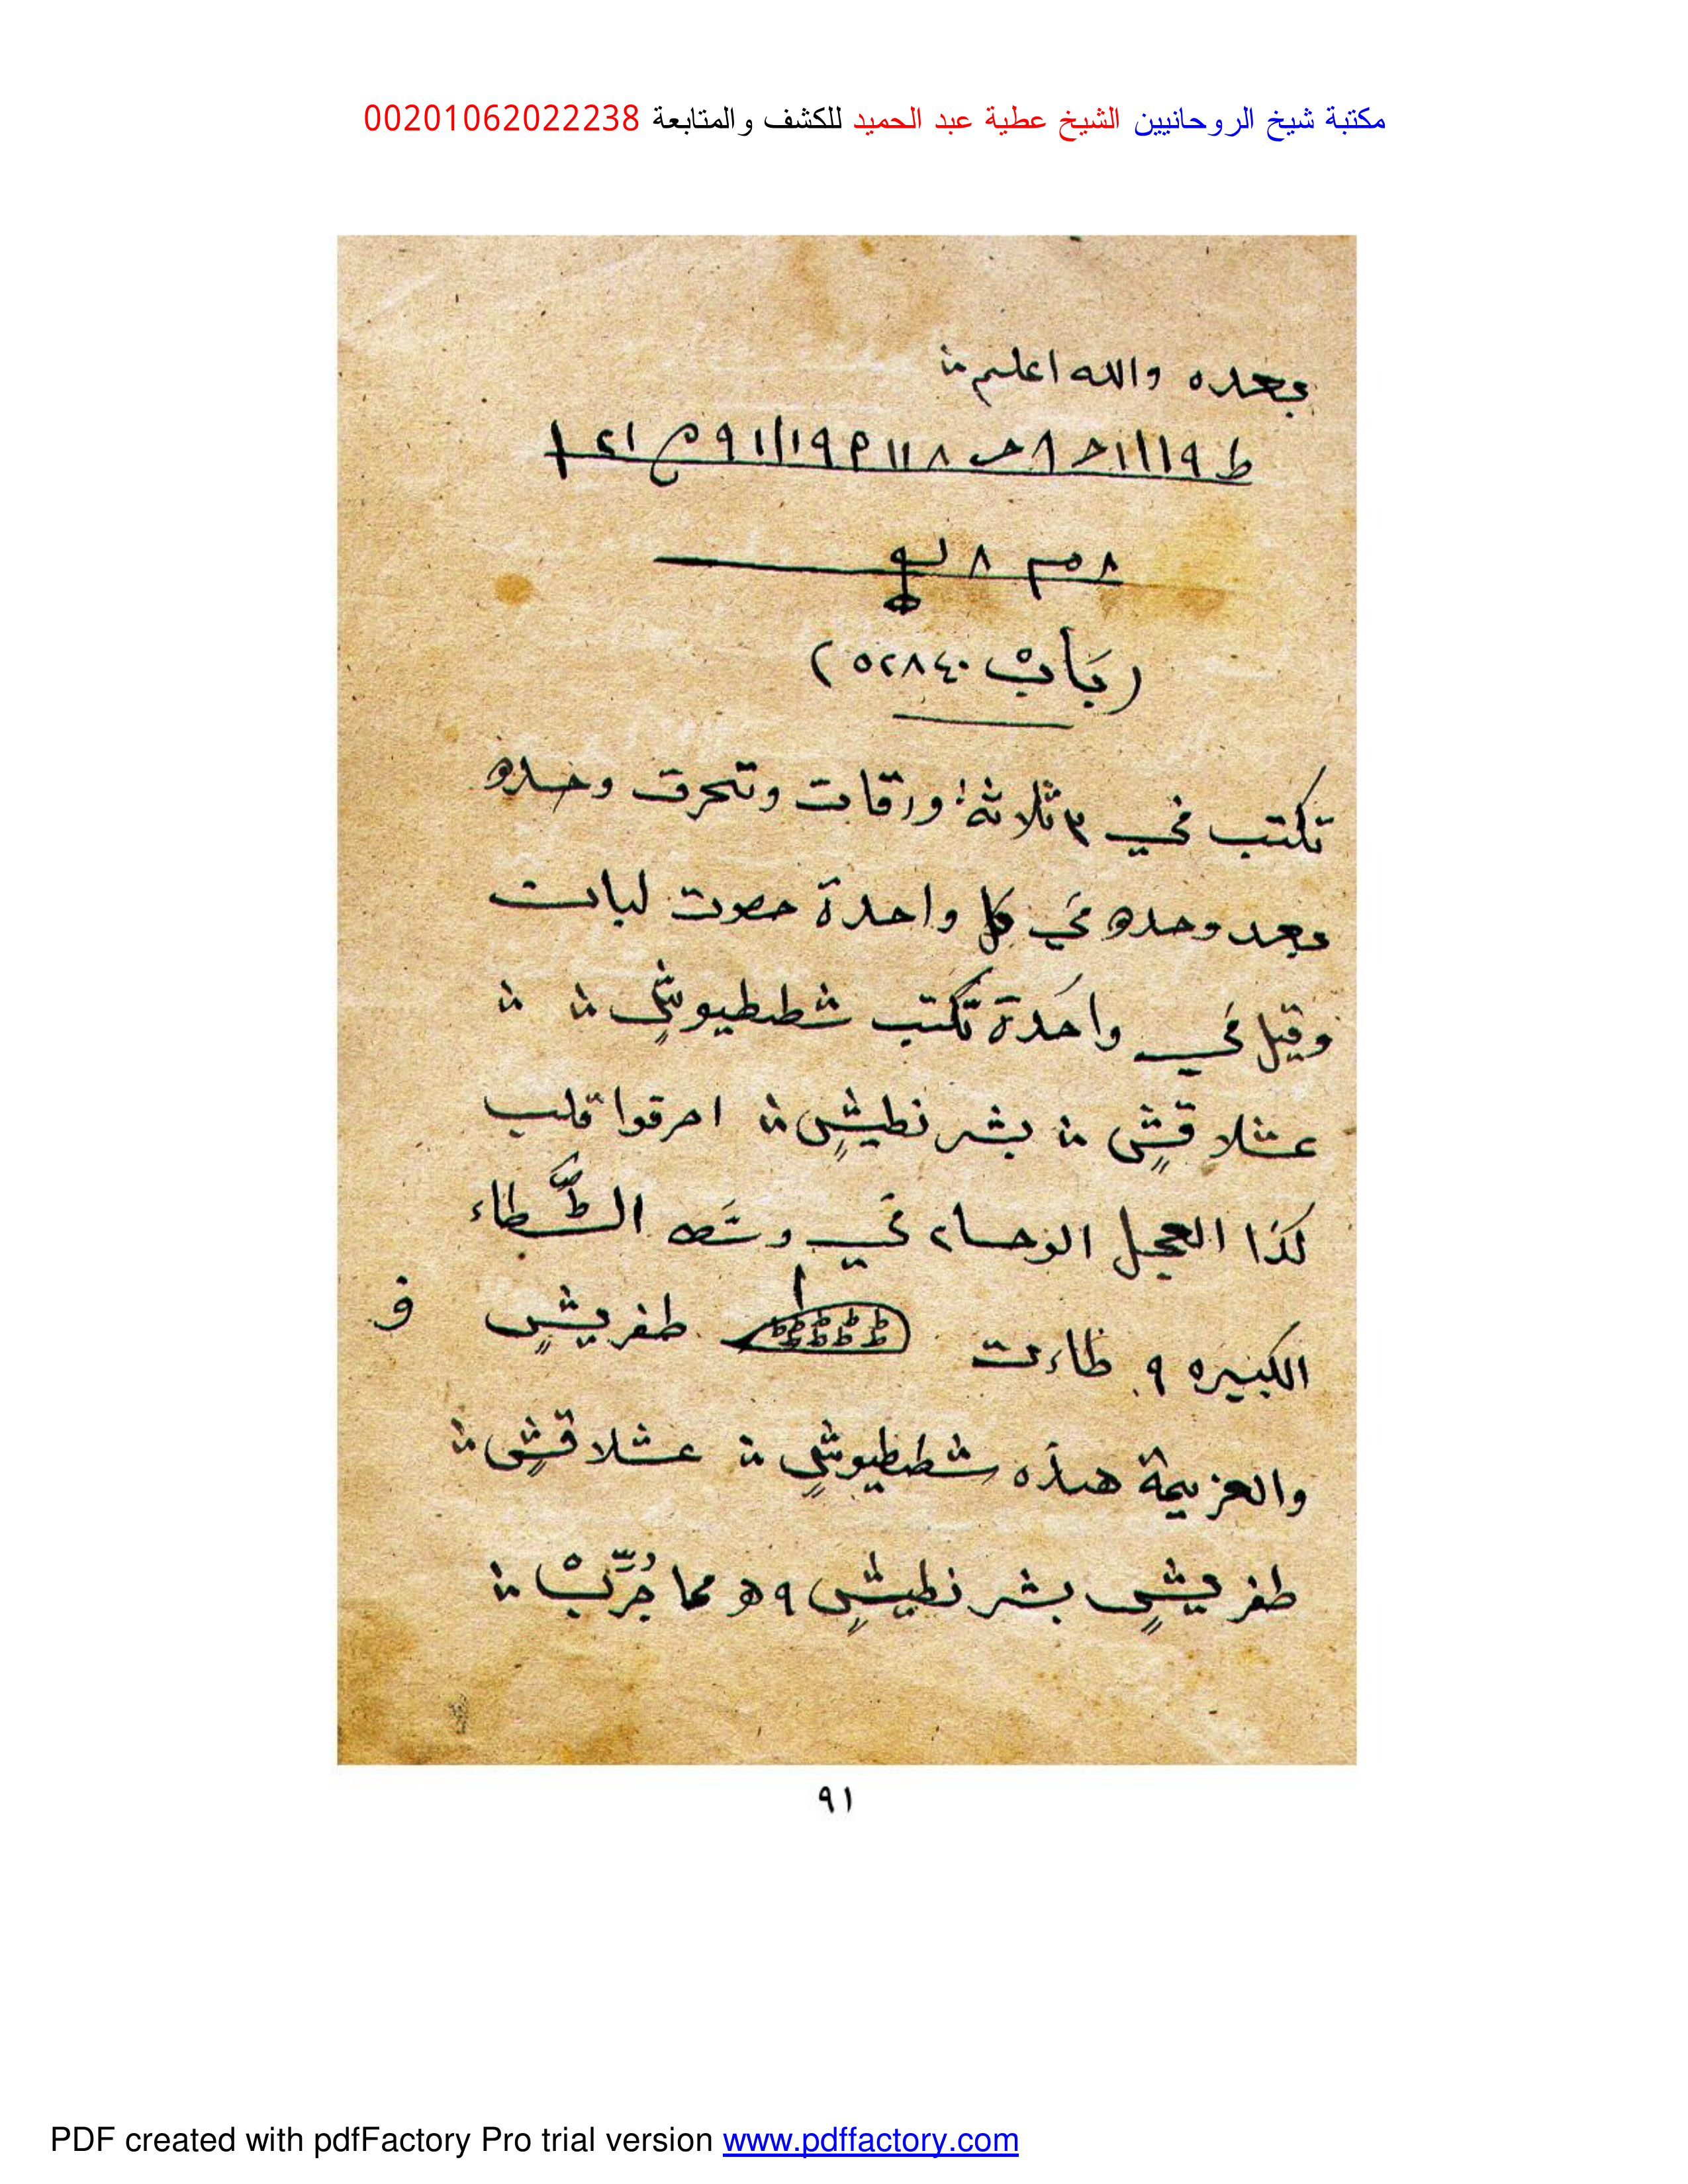 مكتبة شيخ الروحانيين الشيخ عطية عبد الحميد للكشف والمتابعة 00201062022238
بعده والله اعلم
ط ٩ ١ ١ ١ ح ٨
٨ ٨
(بَابْ ٥٢٨٤٠)
تكتب في ٣ ثلاثة ورقات وتحرق وحده
بعد وحده في كل واحدة
وقيل في واحدة تكتب شططيوش
عشلاقش بشرنطيش احرقوا قلب
كذا العجل في
الكبيره ٩ ظاءت طفريش و
والعزيمة هذه شططيوش عشلاقش
طفريش بشرنطيش ٩ه مما جُرِّبْ
٩١
PDF created with pdfFactory Pro trial version www.pdffactory.com